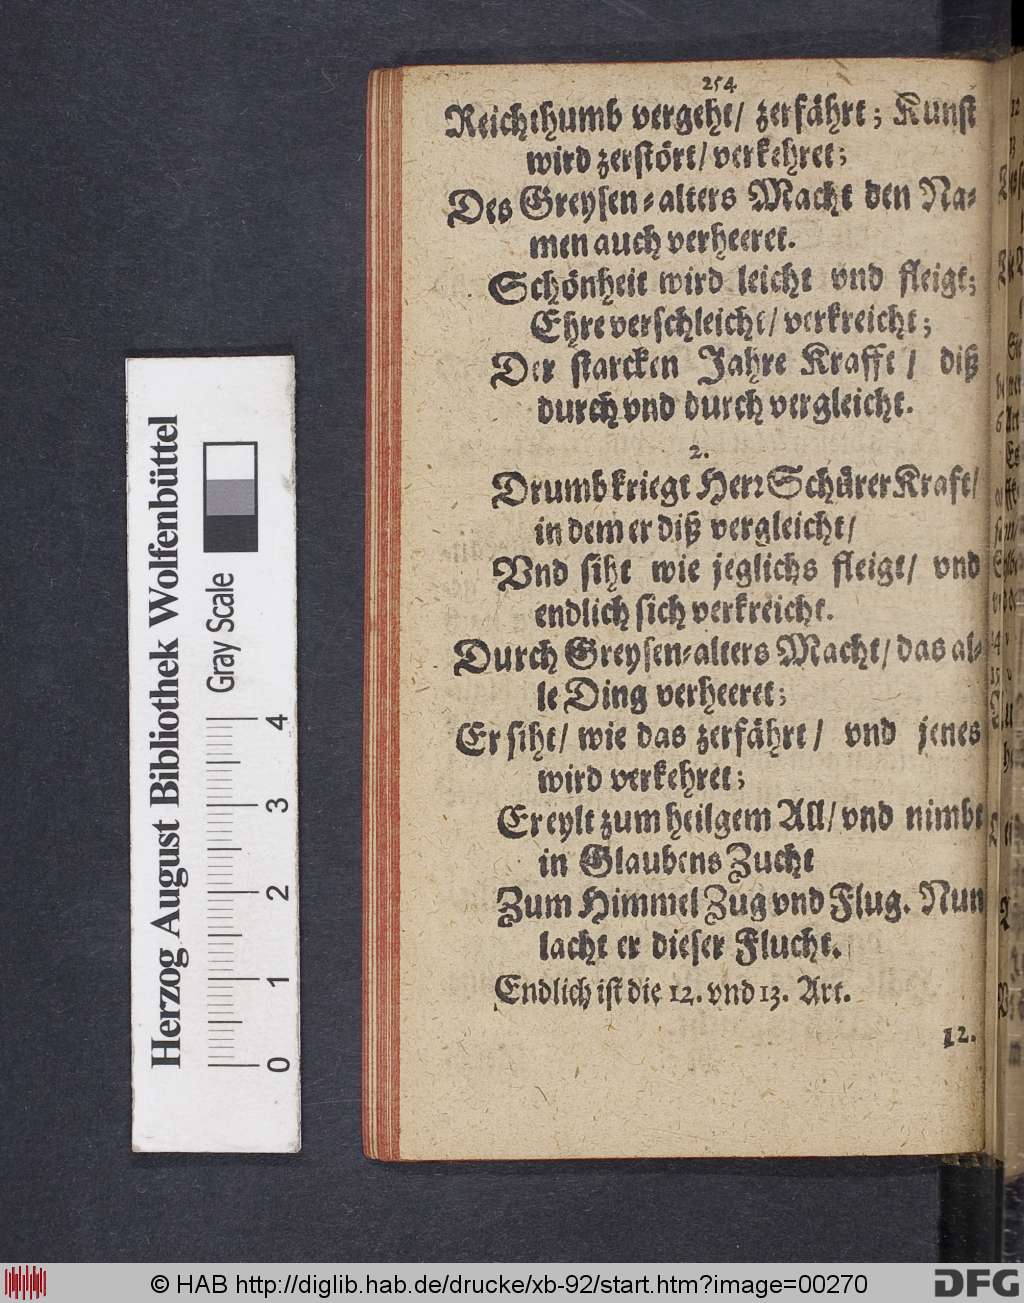 254
Reichthumb vergeht/ zerfährt; Kunst
wird zerstört/ verkehret;
Des Greysen-alters Macht den Na-
men auch verheeret.
Schönheit wird leicht vnd fleigt;
Ehre verschleicht/ verkreicht;
Der starcken Jahre Krafft/ diß
durch vnd durch vergleicht.
2.
Drumb kriegt Herr Schärer Kraft/
in dem er diß vergleicht/
Vnd siht wie jeglichs fleigt/ vnd
endlich sich verkreicht.
Durch Greysen-alters Macht/ das al-
le Ding verheeret;
Er siht/ wie das zerfährt/ vnd jenes
wird verkehret;
Er eylt zum heilgem All/ vnd nimbt
in Glaubens Zucht
Zum Himmel Zug vnd Flug. Nun
lacht er dieser Flucht.
Endlich ist die 12. vnd 13. Art.
12.
Herzog August Bibliothek Wolfenbüttel
Gray Scale
0 1 2 3 4
© HAB http://diglib.hab.de/drucke/xb-92/start.htm?image=00270
DFG